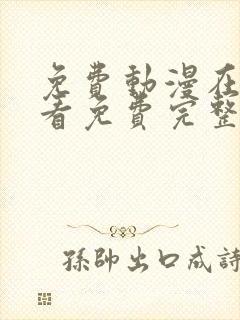 免費動漫在
看免費完整
孫帥出口成詩